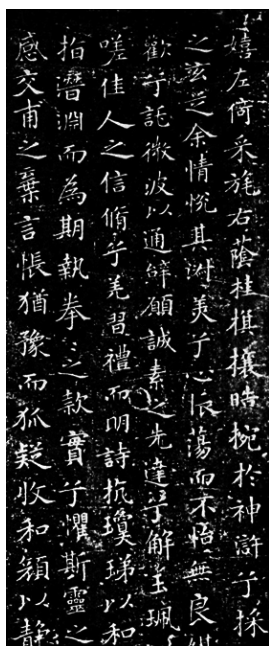 嬉左倚采旄右蔭桂旗攘皓捥於神滸兮採
之玄芝余情悅其淑美兮心振蕩而不怡無良媒
歡兮託微波以通辭願誠素之先達兮解玉珮
嗟佳人之信脩兮羌習禮而明詩抗瓊珶以和
指潛淵而為期執拳〻之款實兮懼斯靈之
感交甫之棄言悵猶豫而狐疑收和顏以靜